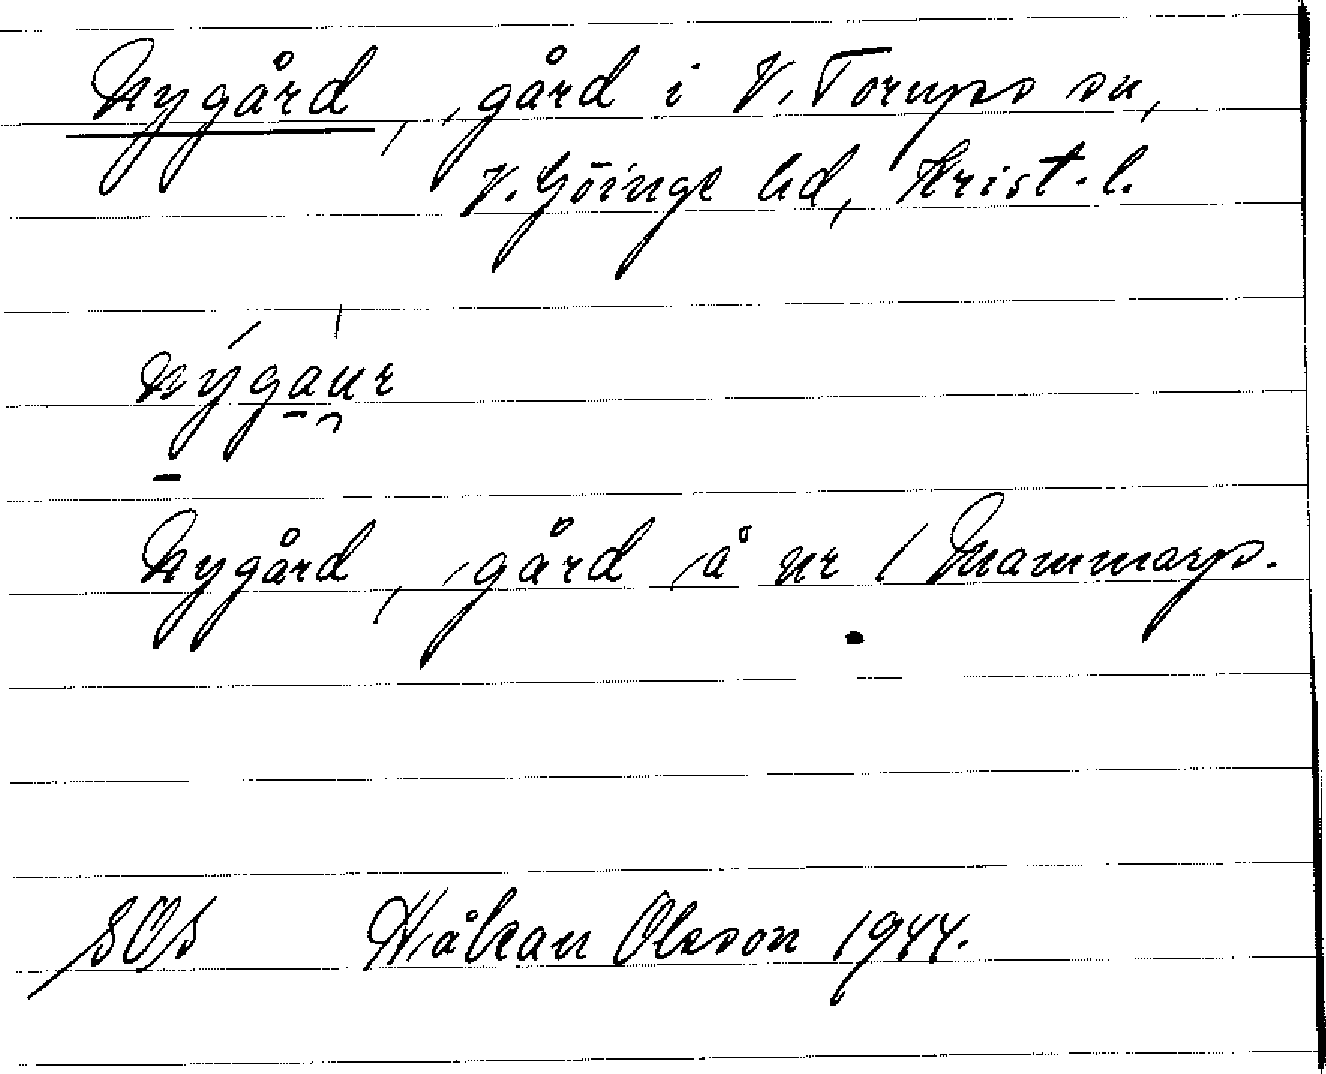 Nygård, gård i V. Torups sn,
V. Göinge hd, Krist. l.
nýgaur
Nygård, gård å nr 1 Mammarp.
SOS Håkan Olsson 1944.